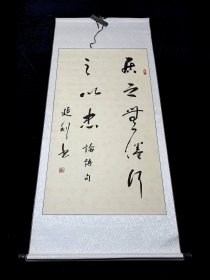 居之無倦行
之以忠 論語句
延利书